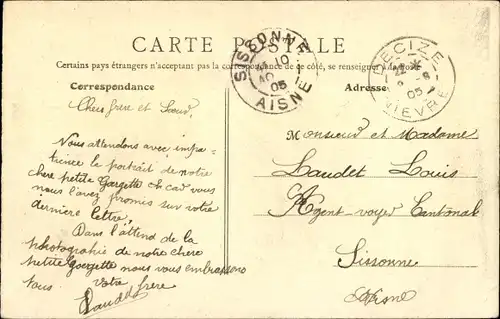 CARTE POSTALE
Certains pays étrangers n'acceptant pas la correspondance de ce côté, se renseigner à la Poste
Correspondance
Adresse
SISSONNE
10
05
AISNE
DECIZE
22
8
05
NIEVRE
Chers frère et Soeur,
Nous attendons avec impa-
tience le portrait de notre
chere petite Gorgette car vous
nous l'avez promis sur votre
dernière lettre,
Dans l'attend de la
photographie de notre chere
petite Goergette nous vous embrassons
tous. Votre
frère
Monsieur et Madame
Laudet Louis
Agent-voyer Cantonal
Sissonne
Aisne